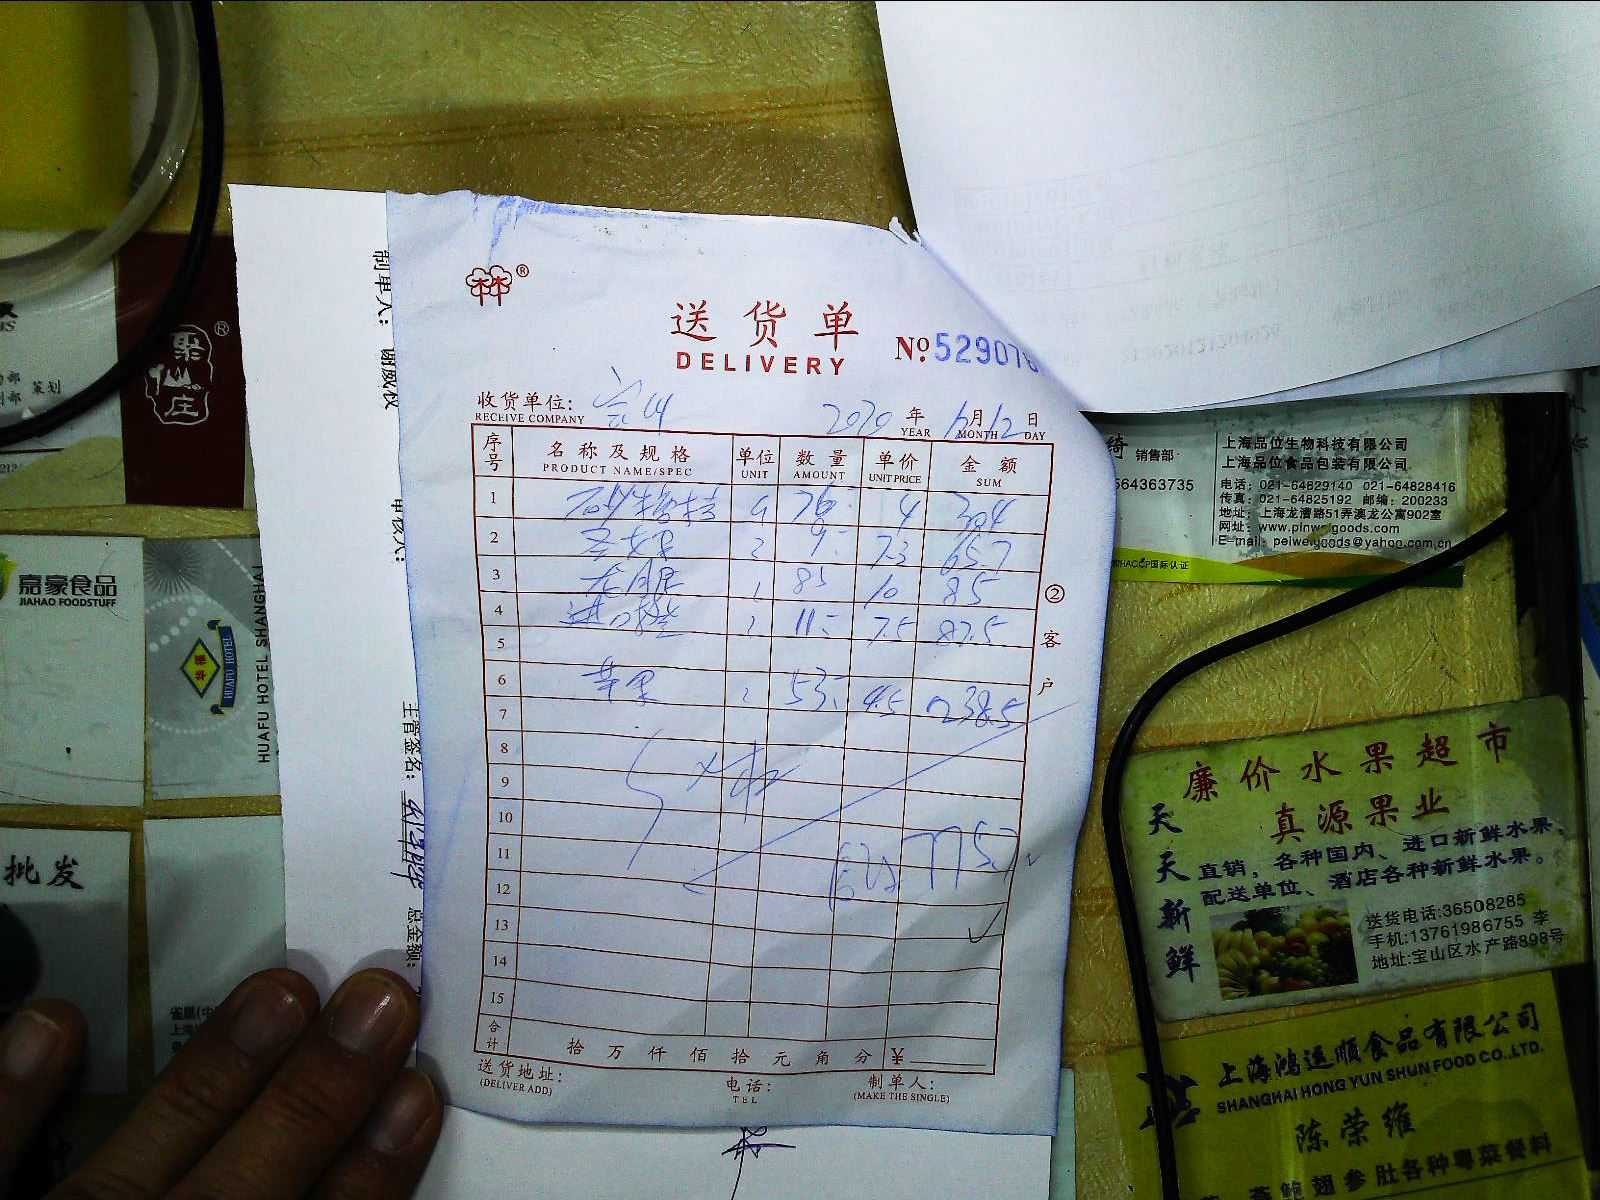 送货单
DELIVERY
№ 529078
收货单位:
RECEIVE COMPANY
2020 年 月 12 日
YEAR MONTH DAY
序号 名称及规格 单位 数量 单价 金额
PRODUCT NAME/SPEC UNIT AMOUNT UNIT PRICE SUM
1 76 4 304
2 圣女果 9 7.3 65.7
3 龙眼 1 85 10 85
4 进口橙 11 7.5 87.5
5
6 苹果 53 4.5 238.5
7
8
9
10
11 775.7
12
13
14
15
合计 拾 万 仟 佰 拾 元 角 分 ¥
送货地址:
(DELIVER ADD)
电话:
TEL
制单人:
(MAKE THE SINGLE)
② 客户
制单人: 谢威权
审核人:
主管签名:
总金额:
聚仙庄
策划
嘉豪食品
JIAHAO FOODSTUFF
HUAFU HOTEL
HUAFU HOTEL SHANGHAI
批发
绮 销售部
564363735
上海品位生物科技有限公司
上海品位食品包装有限公司
电话: 021-64829140 021-64828416
传真: 021-64825192 邮编: 200233
地址: 上海龙漕路51弄澳龙公寓902室
网址: www.pinweigoods.com
E-mail: peiweigoods@yahoo.com.cn
HACCP国际认证
廉价水果超市
真源果业
天天新鲜
直销,各种国内、进口新鲜水果,
配送单位、酒店各种新鲜水果。
送货电话:36508285
手机:13761986755 李
地址:宝山区水产路898号
上海鸿运顺食品有限公司
SHANGHAI HONG YUN SHUN FOOD CO.,LTD.
陈荣维
燕鲍翅参肚各种粤菜餐料